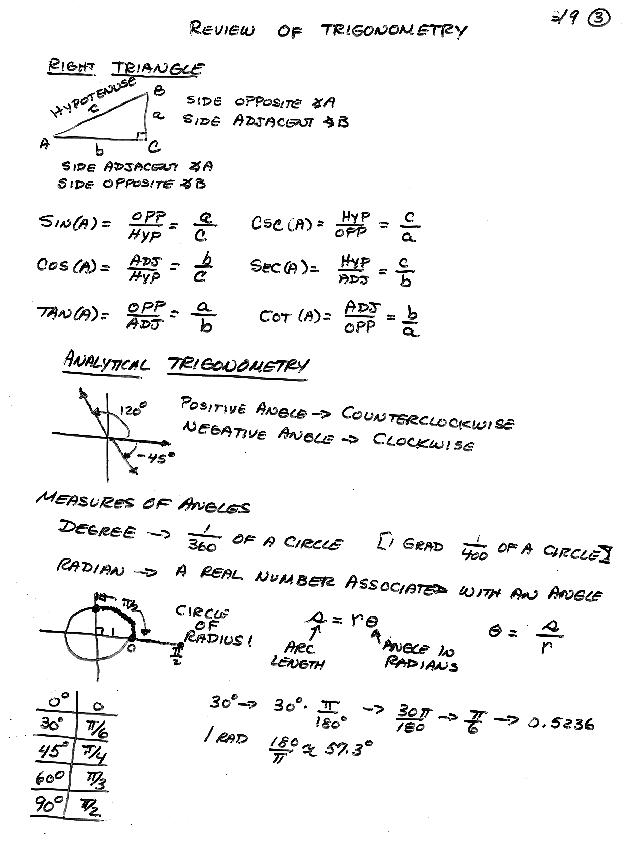 2/9 ③
REVIEW OF TRIGONOMETRY
RIGHT TRIANGLE
HYPOTENUSE
c
B
a
A
b
C
SIDE OPPOSITE ∡A
SIDE ADJACENT ∡B
SIDE ADJACENT ∡A
SIDE OPPOSITE ∡B
SIN(A) = OPP/HYP = a/c CSC(A) = HYP/OPP = c/a
COS(A) = ADJ/HYP = b/c SEC(A) = HYP/ADJ = c/b
TAN(A) = OPP/ADJ = a/b COT(A) = ADJ/OPP = b/a
ANALYTICAL TRIGONOMETRY
120°
-45°
POSITIVE ANGLE → COUNTERCLOCKWISE
NEGATIVE ANGLE → CLOCKWISE
MEASURES OF ANGLES
DEGREE → 1/360 OF A CIRCLE [1 GRAD 1/400 OF A CIRCLE]
RADIAN → A REAL NUMBER ASSOCIATED WITH AN ANGLE
π/2
1
0
π/2
CIRCLE
OF
RADIUS 1
s = rθ
ARC
LENGTH
ANGLE IN
RADIANS
θ = s/r
0° 0
30° π/6
45° π/4
60° π/3
90° π/2
30° → 30° · π/180° → 30π/180 → π/6 → 0.5236
1 RAD 180°/π ≈ 57.3°